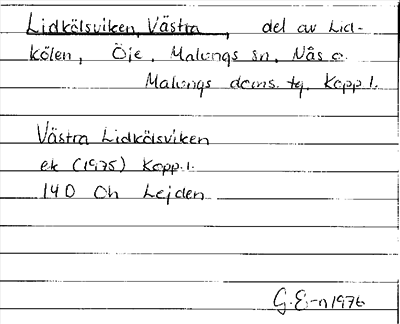 Lidkölsviken, Västra, del av Lid-
kölen, Öje, Malungs sn, Nås o.
Malungs doms. tg, Kopp l.
Västra Lidkölsviken
ek (1975) Kopp. l.
14D Oh Lejden
G. E-n 1976